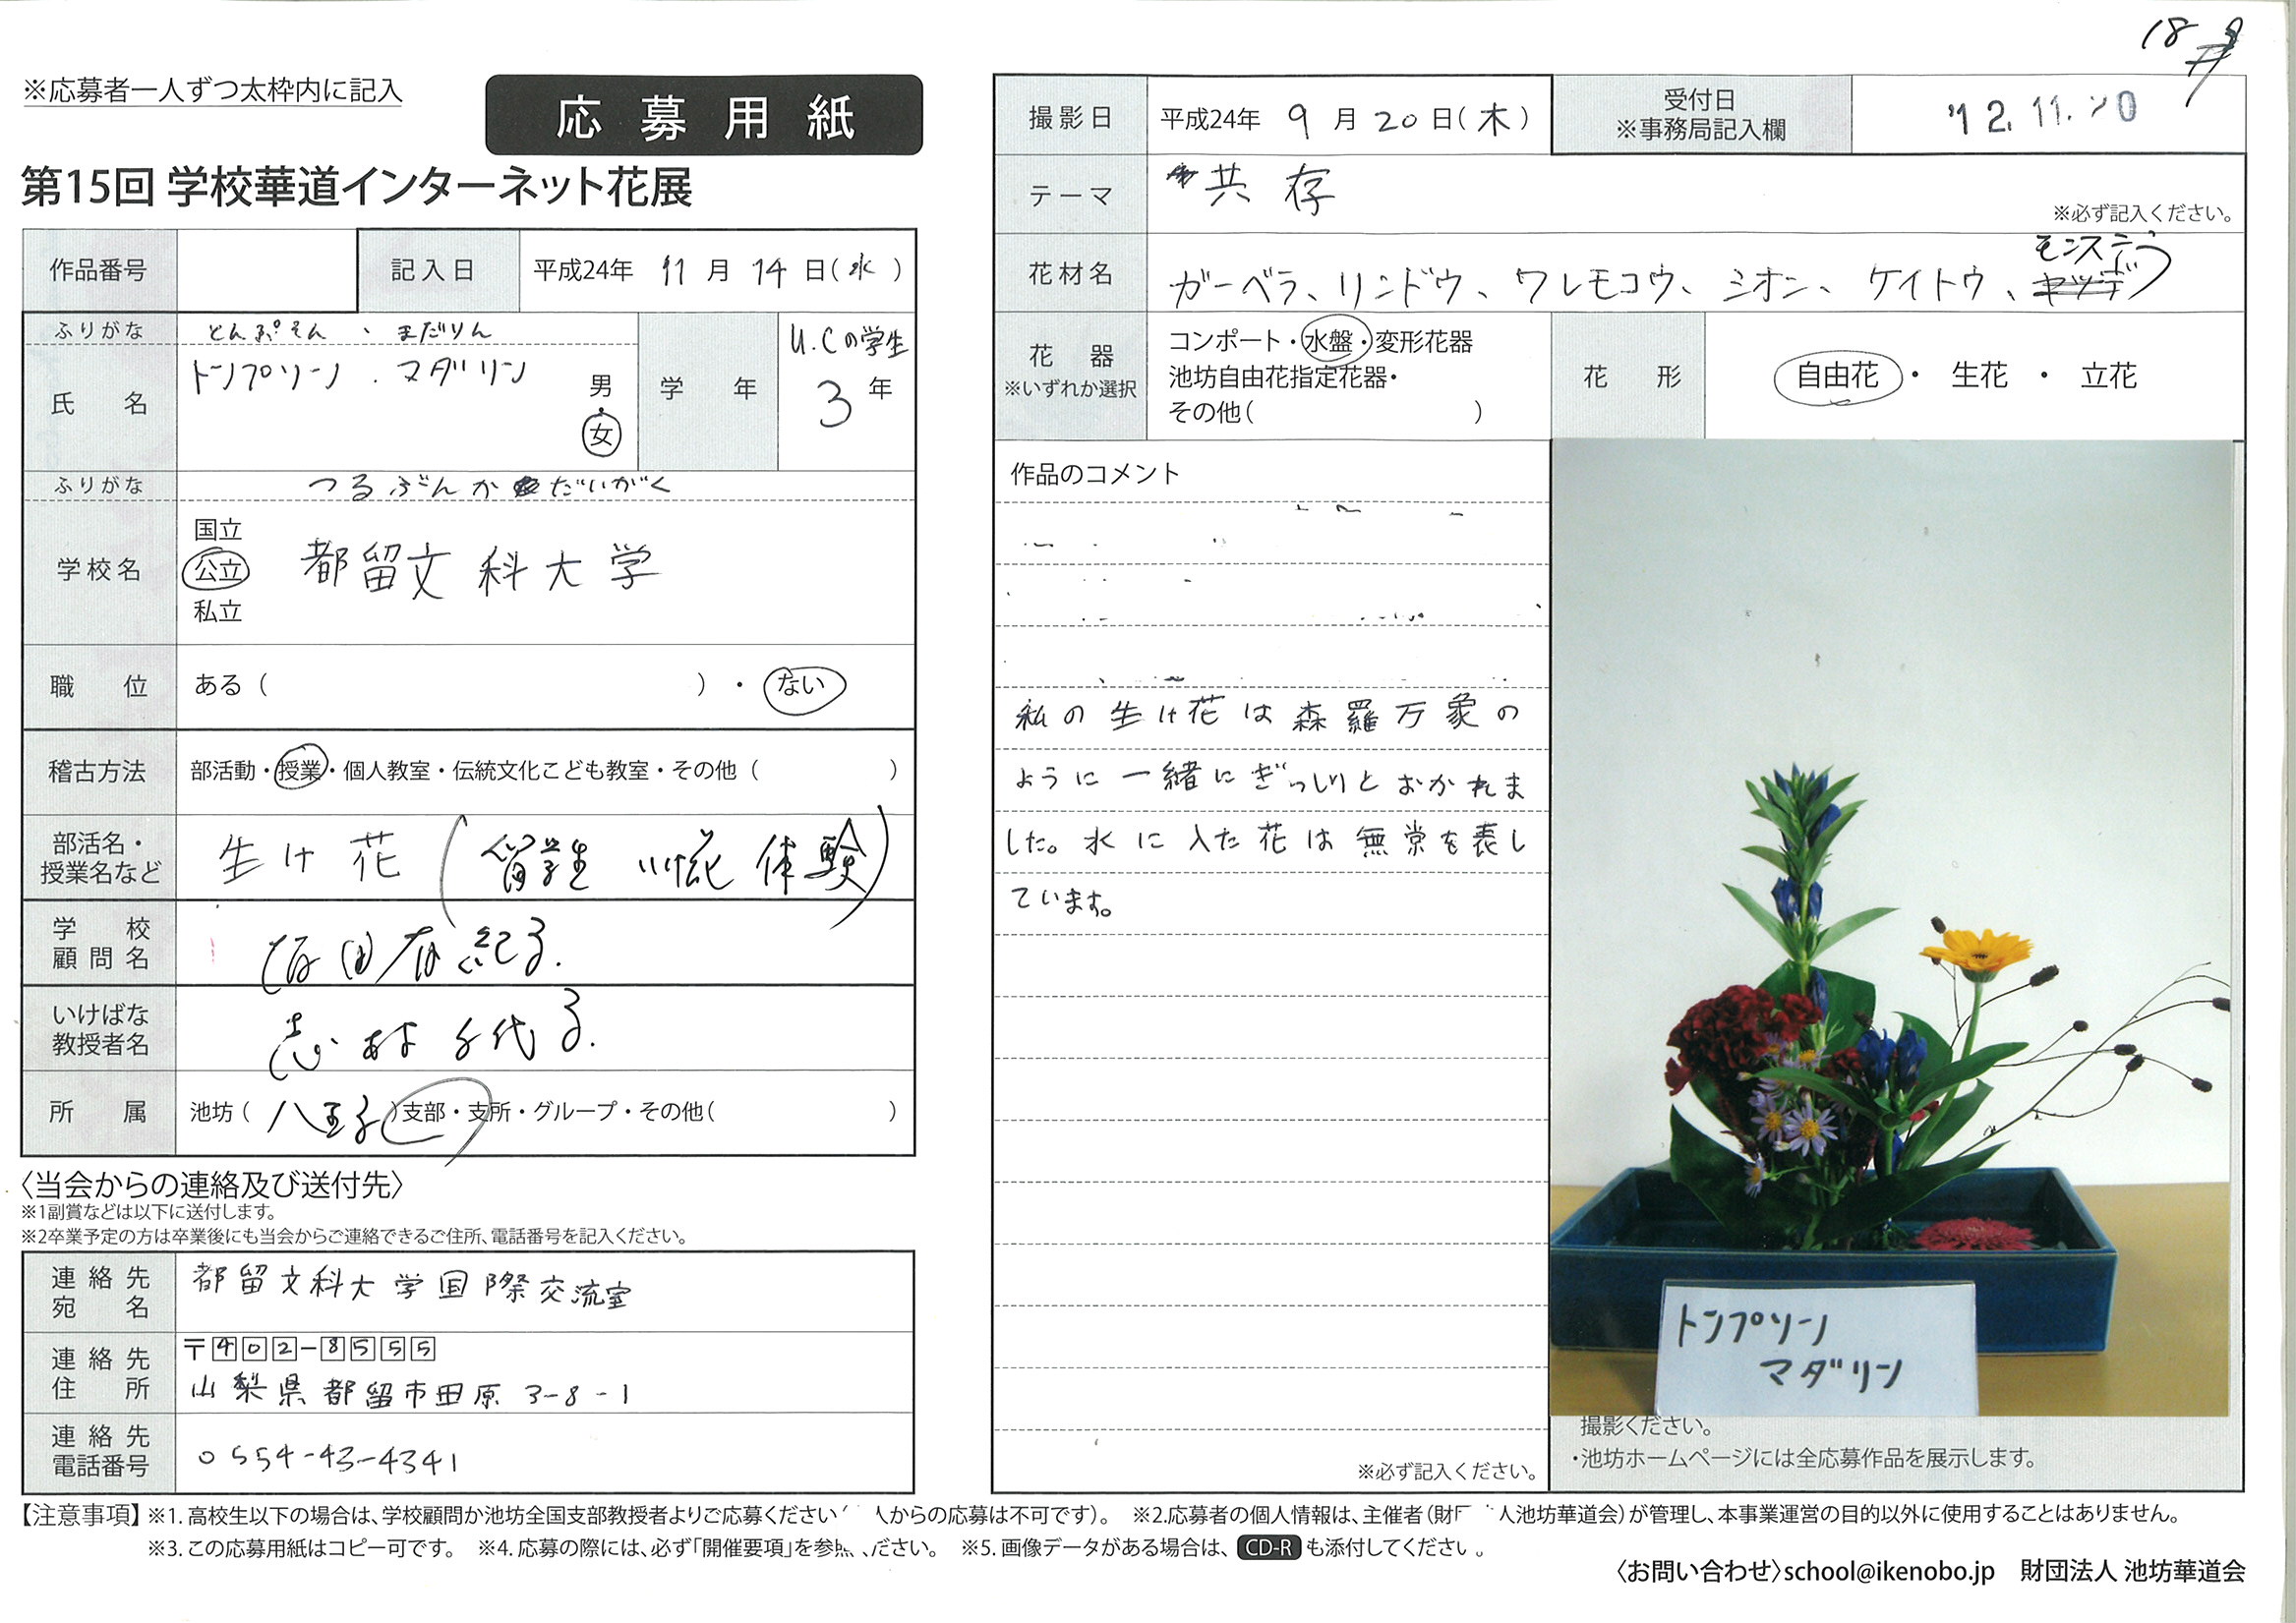 ※応募者一人ずつ太枠内に記入
応募用紙
第15回 学校華道インターネット花展
作品番号
記入日 平成24年 11月 14日(水)
ふりがな とんぷそん、まだりん
氏名 トンプソン . マダリン 男・女
学年 U.Cの学生 3年
ふりがな つるぶんかだいがく
学校名 国立 公立 私立 都留文科大学
職位 ある( )・ない
稽古方法 部活動・授業・個人教室・伝統文化こども教室・その他( )
部活名・授業名など 生け花(留学生 いけ花 体験)
学校顧問名
いけばな教授者名 志村千代子.
所属 池坊(八王子)支部・支所・グループ・その他( )
〈当会からの連絡及び送付先〉
※1副賞などは以下に送付します。
※2卒業予定の方は卒業後にも当会からご連絡できるご住所、電話番号を記入ください。
連絡先宛名 都留文科大学国際交流室
連絡先住所 〒402-8555
山梨県都留市田原 3-8-1
連絡先電話番号 0554-43-4341
18
撮影日 平成24年 9月 20日(木)
受付日
※事務局記入欄
'12.11.20
テーマ 共存
※必ず記入ください。
モンステラ
花材名 ガーベラ、リンドウ、ワレモコウ、シオン、ケイトウ、
花器 ※いずれか選択
コンポート・水盤・変形花器
池坊自由花指定花器・
その他( )
花形 自由花・生花・立花
作品のコメント
私の生け花は森羅万象の
ように一緒にぎっしりとおかれま
した。水に入た花は無常を表し
ています。
※必ず記入ください。
トンプソン
マダリン
撮影ください。
・池坊ホームページには全応募作品を展示します。
【注意事項】※1.高校生以下の場合は、学校顧問か池坊全国支部教授者よりご応募ください 人からの応募は不可です)。 ※2.応募者の個人情報は、主催者(財 人池坊華道会)が管理し、本事業運営の目的以外に使用することはありません。
※3.この応募用紙はコピー可です。 ※4.応募の際には、必ず「開催要項」を参照ください。 ※5.画像データがある場合は、CD-Rも添付してください。
〈お問い合わせ〉school@ikenobo.jp 財団法人 池坊華道会